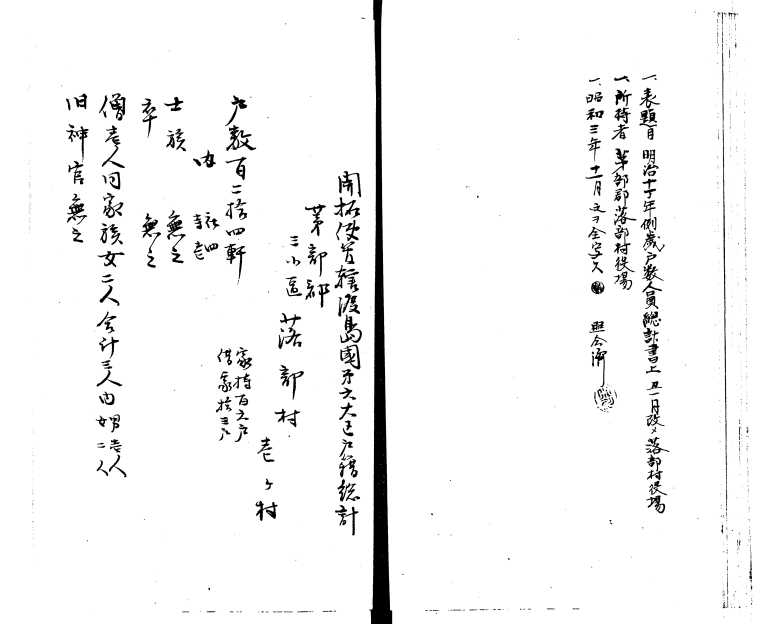 一、表題百 明治十丁年例歳戸数人員總計書上 丑一月改メ 落部村役場
一、所持者 茅部郡落部村役場
一、昭和三年十一月 文ヲ全写ス 照合濟
開拓使管轄渡島國第六大区戸籍総計
茅部郡
三小區 落部村
壱ヶ村
戸数百二拾四軒
家持百六戸
借家拾三戸
内 社四
寺壱
士族 無之
卒 無之
僧壱人同家族女二人合計三人内 男壱人
女二人
旧神官無之